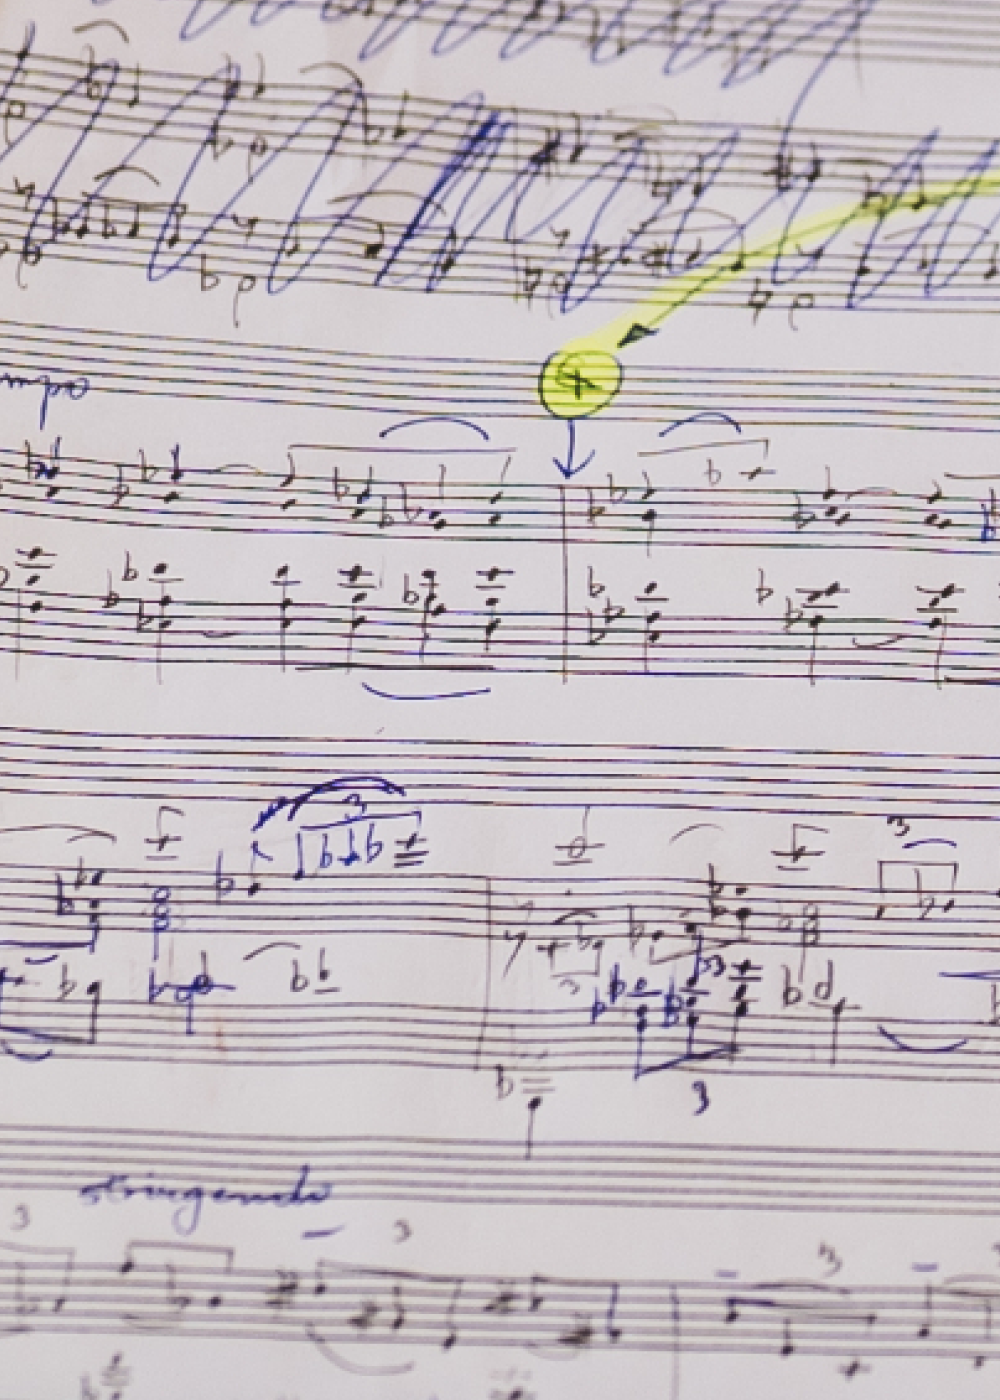 mpo
3
3
3
stringendo
3
3
3